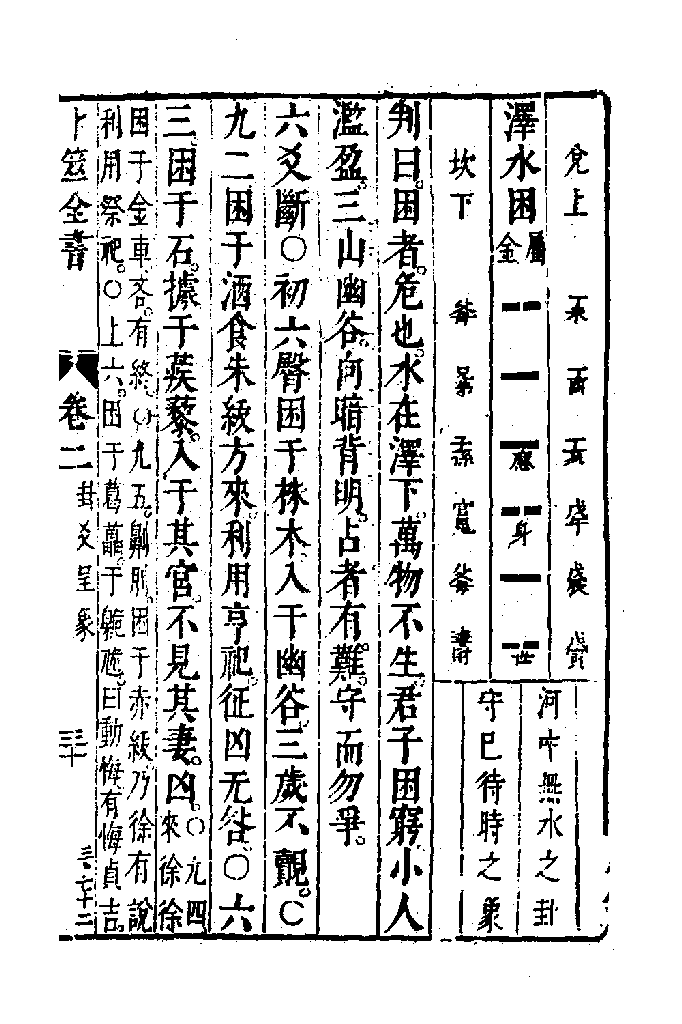 兌上
澤水困 屬金 應 身 世
坎下
河中無水之卦
守已待時之象
判曰。困者。危也。水在澤下。萬物不生。君子困窮。小人
濫盈。三山幽谷。向暗背明。占者有難。守而勿爭。
六爻斷○初六臀困于株木。入于幽谷。三歲不覿。○
九二困于酒食朱紱方來。利用亨祀。征凶无咎。○六
三。困于石。據于蒺藜。入于其宮。不見其妻。凶。○九四
來徐徐
困于金車。吝有終。○九五。劓刖。困于赤紱。乃徐有說
利用祭祀。○上六。困于葛藟。于臲卼。曰動悔有悔貞吉。
卜筮全書 卷二 卦爻呈象 三十